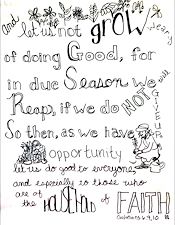 And let us not grow weary
of doing Good, for
in due Season we will
Reap, if we do NOT GIVE UP.
So then, as we have
opportunity
let us do good to everyone,
and especially to those who
are of the HOUSEHOLD of FAITH
Galatians 6:9,10